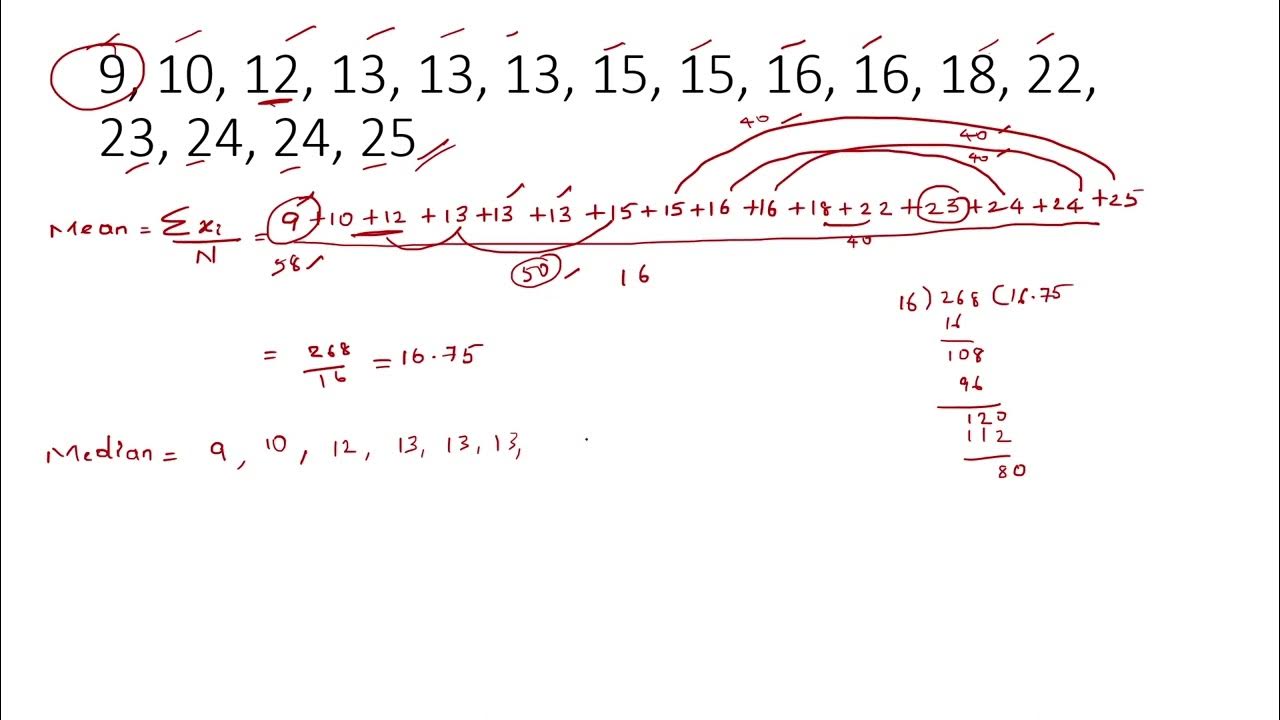 9, 10, 12, 13, 13, 13, 15, 15, 16, 16, 18, 22,
23, 24, 24, 25
40
40
40
Mean = Σxi / N = 9 +10 +12 + 13 +13 +13 +15 +15 +16 +16 +18 + 22 +23 +24 +24 +25
40
58
50
16
16 ) 268 ( 16.75
16
108
= 268 / 16 = 16.75
96
120
112
80
Median = 9, 10, 12, 13, 13, 13,